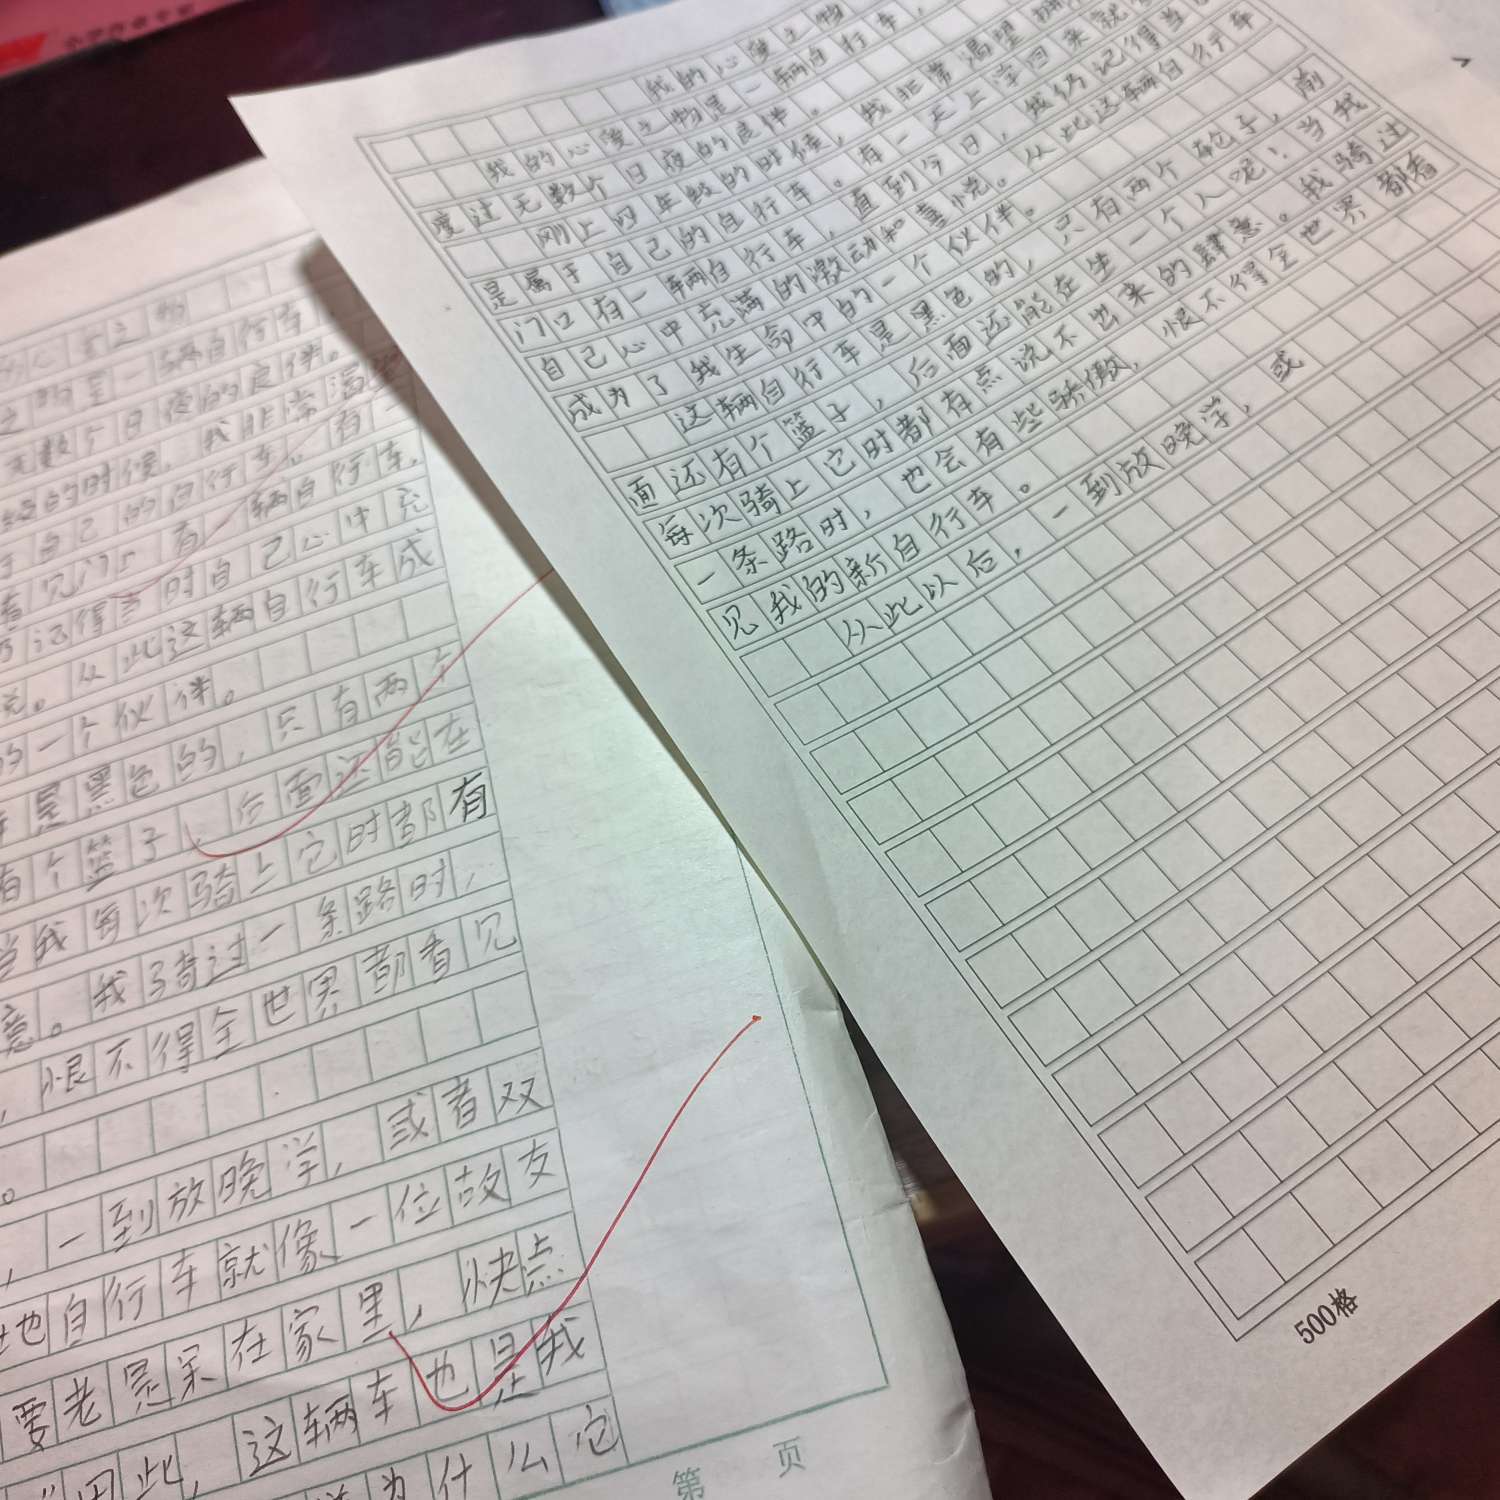 我的心爱之物
我的心爱之物是一辆自行车,
度过无数个日夜的良伴。
刚上四年级的时候,我非常渴望拥
是属于自己的自行车。有一天上学回来就
门口有一辆自行车,直到今日,我仍记得当
自己心中充满的激动和喜悦。从此这辆自行车
成为了我生命中的一个伙伴。
这辆自行车是黑色的,只有两个轮子,前
面还有个篮子,后面还能在坐一个人呢!当我
每次骑上它时都有点说不出来的肆意。我骑过
一条路时,也会有些骄傲,恨不得全世界都看
见我的新自行车。
从此以后,一到放晚学,或
500格
心爱之物
之物是一辆自行车
无数个日夜的良伴。
级的时候,我非常渴望
于自己的自行车。有一
看见门口有一辆自行车,
仍记得当时自己心中充
悦。从此这辆自行车成
的一个伙伴。
车是黑色的,只有两个
有个篮子,后面还能在
当我每次骑上它时都有
意。我骑过一条路时,
,恨不得全世界都看见
。
,一到放晚学,或者双
地自行车就像一位故友
要老是呆在家里,快点
”因此,这辆车也是我
为什么它
第 页